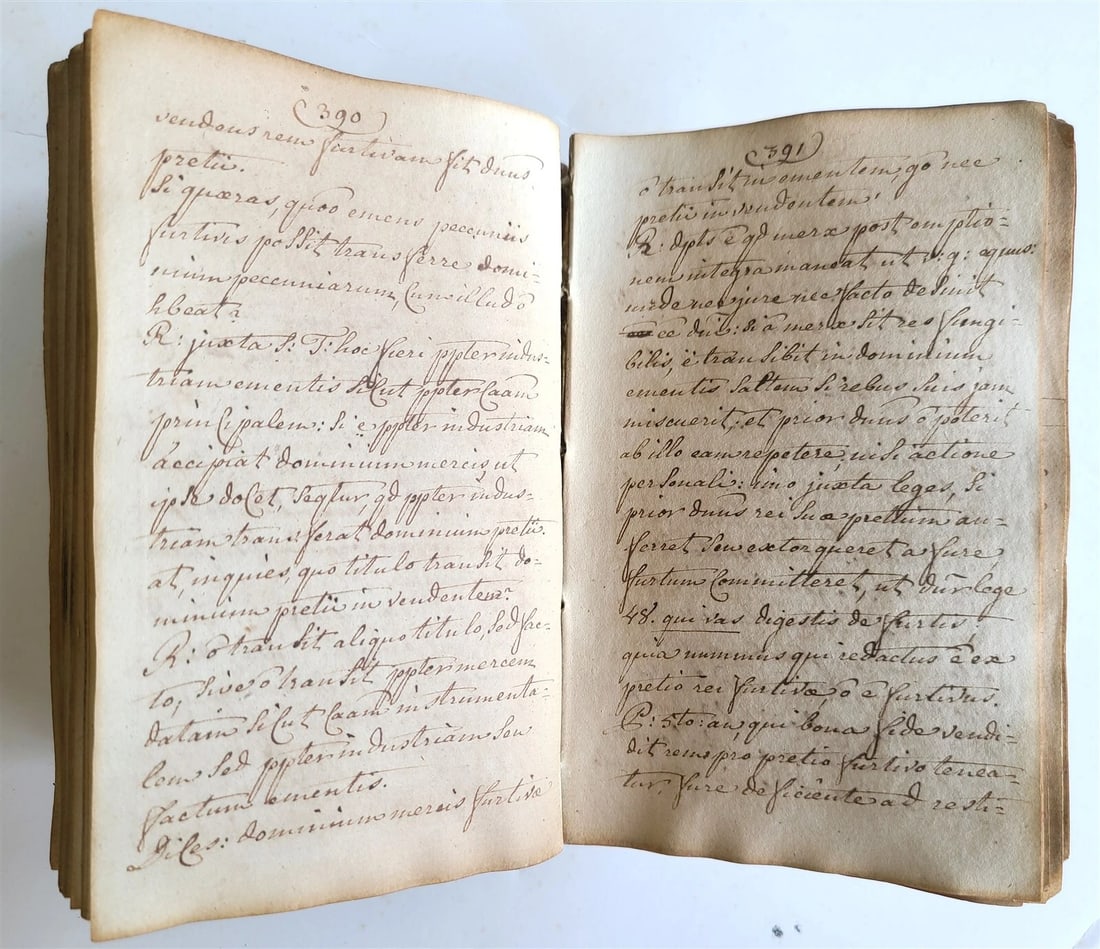 (390)
vendens rem furtivam fit dnus
pretii.
Si quæras, quoo emens pecuniis
furtivis possit transferre domi-
nium pecuniarum, cum illud ō
hbeat?
R: juxta S: T: hoc fieri ppter indus-
triam ementis sicut ppter caam
principalem: si ē ppter industriam
accipiat dominium mercis, ut
ipse docet, seqtur, qd ppter indus-
triam transferat dominium pretii.
at, inquies, quo titulo transit do-
minium pretii in vendentem?
R: ō transit aliquo titulo, sed fac-
to, sive, ō transit ppter mercem
datam sicut caam instrumenta-
lem sed ppter industriam seu
factum ementis.
Dices: dominium mercis furtivæ
(391)
ō transit in ementem, go nec
pretii in vendentem!
R: dpts ē qd merx post emptio-
nem integra maneat ut v: g: equus:
unde nec jure nec facto desinit
ēē dni: si ō merx sit res fungi-
bilis, ē transibit in dominium
ementis saltem si rebus suis jam
miscuerit, et prior dnus ō poterit
ab illo eam repetere, nisi actione
personali: imo juxta leges, si
prior dnus rei suæ pretium au-
ferret seu extorqueret a fure,
furtum committeret, ut dūr lege
48. qui vas digestis de furtis,
quia nummus qui redactus ē ex
pretio rei furtivæ, ō ē furtivus.
P: 5to: an, qui bona fide vendi-
dit rem pro pretio furtivo tenea-
tur, fure deficiente ad resti-